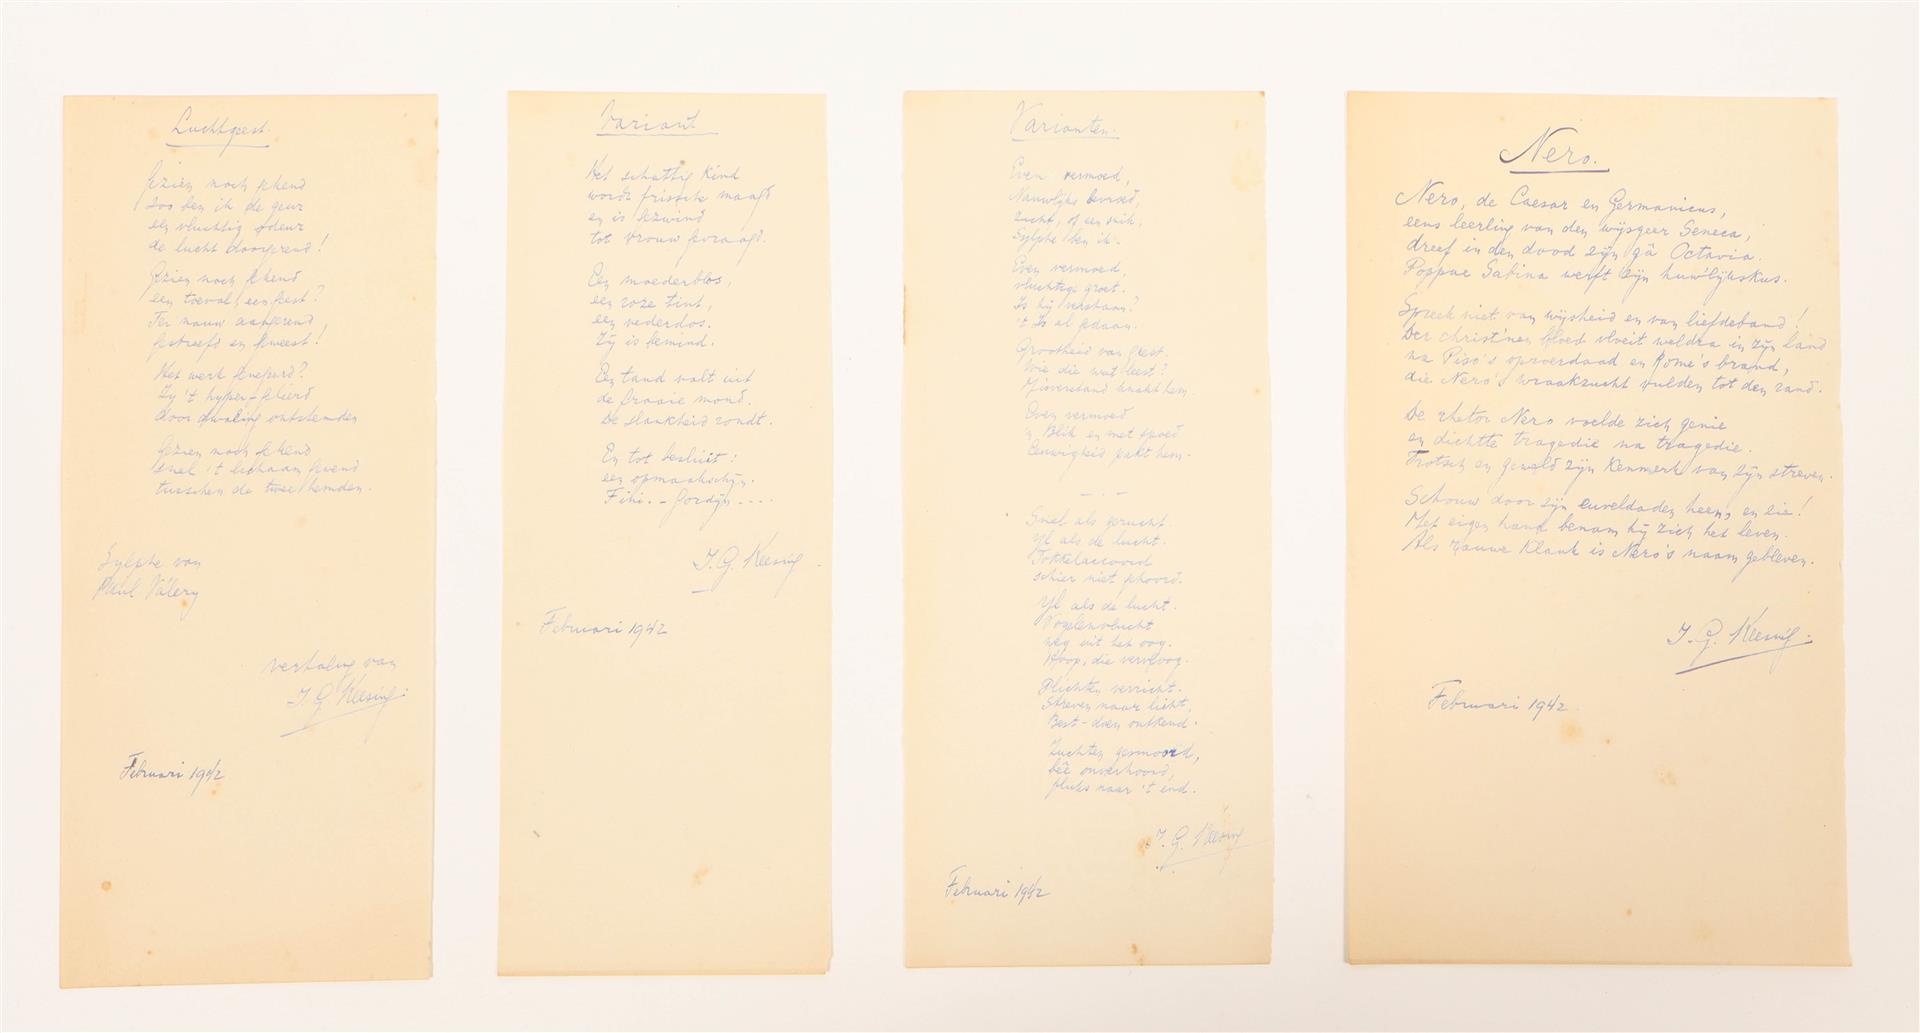 Luchtgeest.
Gezien noch gekend
zoo ben ik de geur
een vluchtig odeur
de lucht doorgerend!
Gezien noch gekend
een toeval, een geest?
Ter nauw aangerend,
gestreefd en geweest!
Het werk geneperd?
Zij 't hyper-geliërd
door dwaling ontstemden
Gezien noch gekend
snel 't lichaam gewend
tusschen de twee hemden.
Sylphe van
Paul Valéry
vertaling van
I. G. Keesing.
Februari 1942
Variant
Het schattig kind
wordt frissche maagd
en is gezwind
tot vrouw gevraagd.
Een moederblos,
een roze tint,
een vederdos.
Zij is bemind.
Een tand valt uit
de fraaie mond.
De slankheid rondt.
En tot besluit:
een opmaakschijn.
Fini. - Gordijn ----
I. G. Keesing
Februari 1942
Varianten.
Even vermoed,
Nauwlijks bevroed,
Zucht, of een snik,
Sylphe ben ik.
Even vermoed,
vluchtige groet.
Is hij verstaan?
't Is al gedaan.
Grootheid van geest.
Wie die wat leest?
Misverstand knakt hem.
Even vermoed
'n Blik en met spoed
Eeuwigheid pakt hem.
- . -
Snel als gerucht.
Yl als de lucht.
Tokkelaccoord
schier niet gehoord.
Yl als de lucht.
Vogelenvlucht
weg uit het oog.
Hoop, die vervloog.
Plichten verricht.
Streven naar licht,
Best-doen ontkend.
Zuchten gesmoord,
beê onverhoord,
fluks naar 't end.
I. G. Keesing
Februari 1942
Nero.
Nero, de Caesar en Germanicus,
eens leerling van den wijsgeer Seneca,
dreef in den dood zijn gâ Octavia.
Poppae Sabina werft zijn huw'lijkskus.
Spreek niet van wijsheid en van liefdeband!
Der christ'nen bloed vloeit weldra in zijn land
na Piso's opzverdaad en Rome's brand,
die Nero's wraakzucht vulden tot den rand.
De rhetor Nero voelde zich genie
en dichtte tragedie na tragedie.
Trotsch en geweld zijn kenmerk van zijn streven.
Schouw door zijn euveldaden heen, en zie!
Met eigen hand benam hij zich het leven.
Als rauwe klank is Nero's naam gebleven.
I. G. Keesing.
Februari 1942.